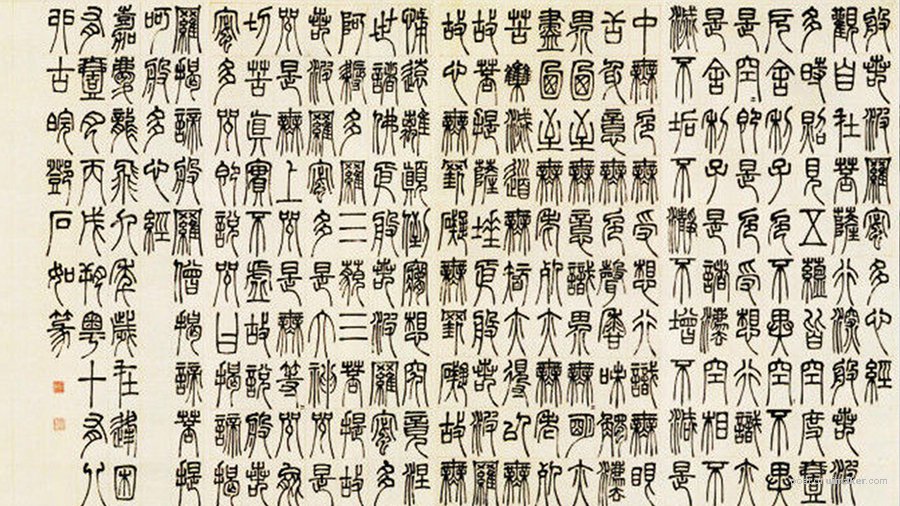 般若波羅蜜多心經
觀自在菩薩行深般若波
多時照見五蘊皆空度壹
厄舍利子色不異空不異
是空即是色受想行識亦
是舍利子是諸法空相不
滅不垢不淨不增不減是
中無色無受想行識無眼
舌身意無色聲香味觸法
界乃至無意識界無明亦
盡乃至無老死亦無老死
苦集滅道無智亦得以無
故菩提薩埵依般若波羅
故心無罣礙無罣礙故無
怖遠離顛倒夢想究竟涅
世諸佛依般若波羅蜜多
阿耨多羅三藐三菩提故
若波羅蜜多是大神咒是
咒是無上咒是無等咒能
切苦真實不虛故說般若
蜜多咒即說咒曰揭諦揭
羅揭諦般羅僧揭諦菩提
呵般多心經
嘉慶龍飛九年歲在逢困
有壹月丙戌朔粵十有八
古皖鄧石如篆